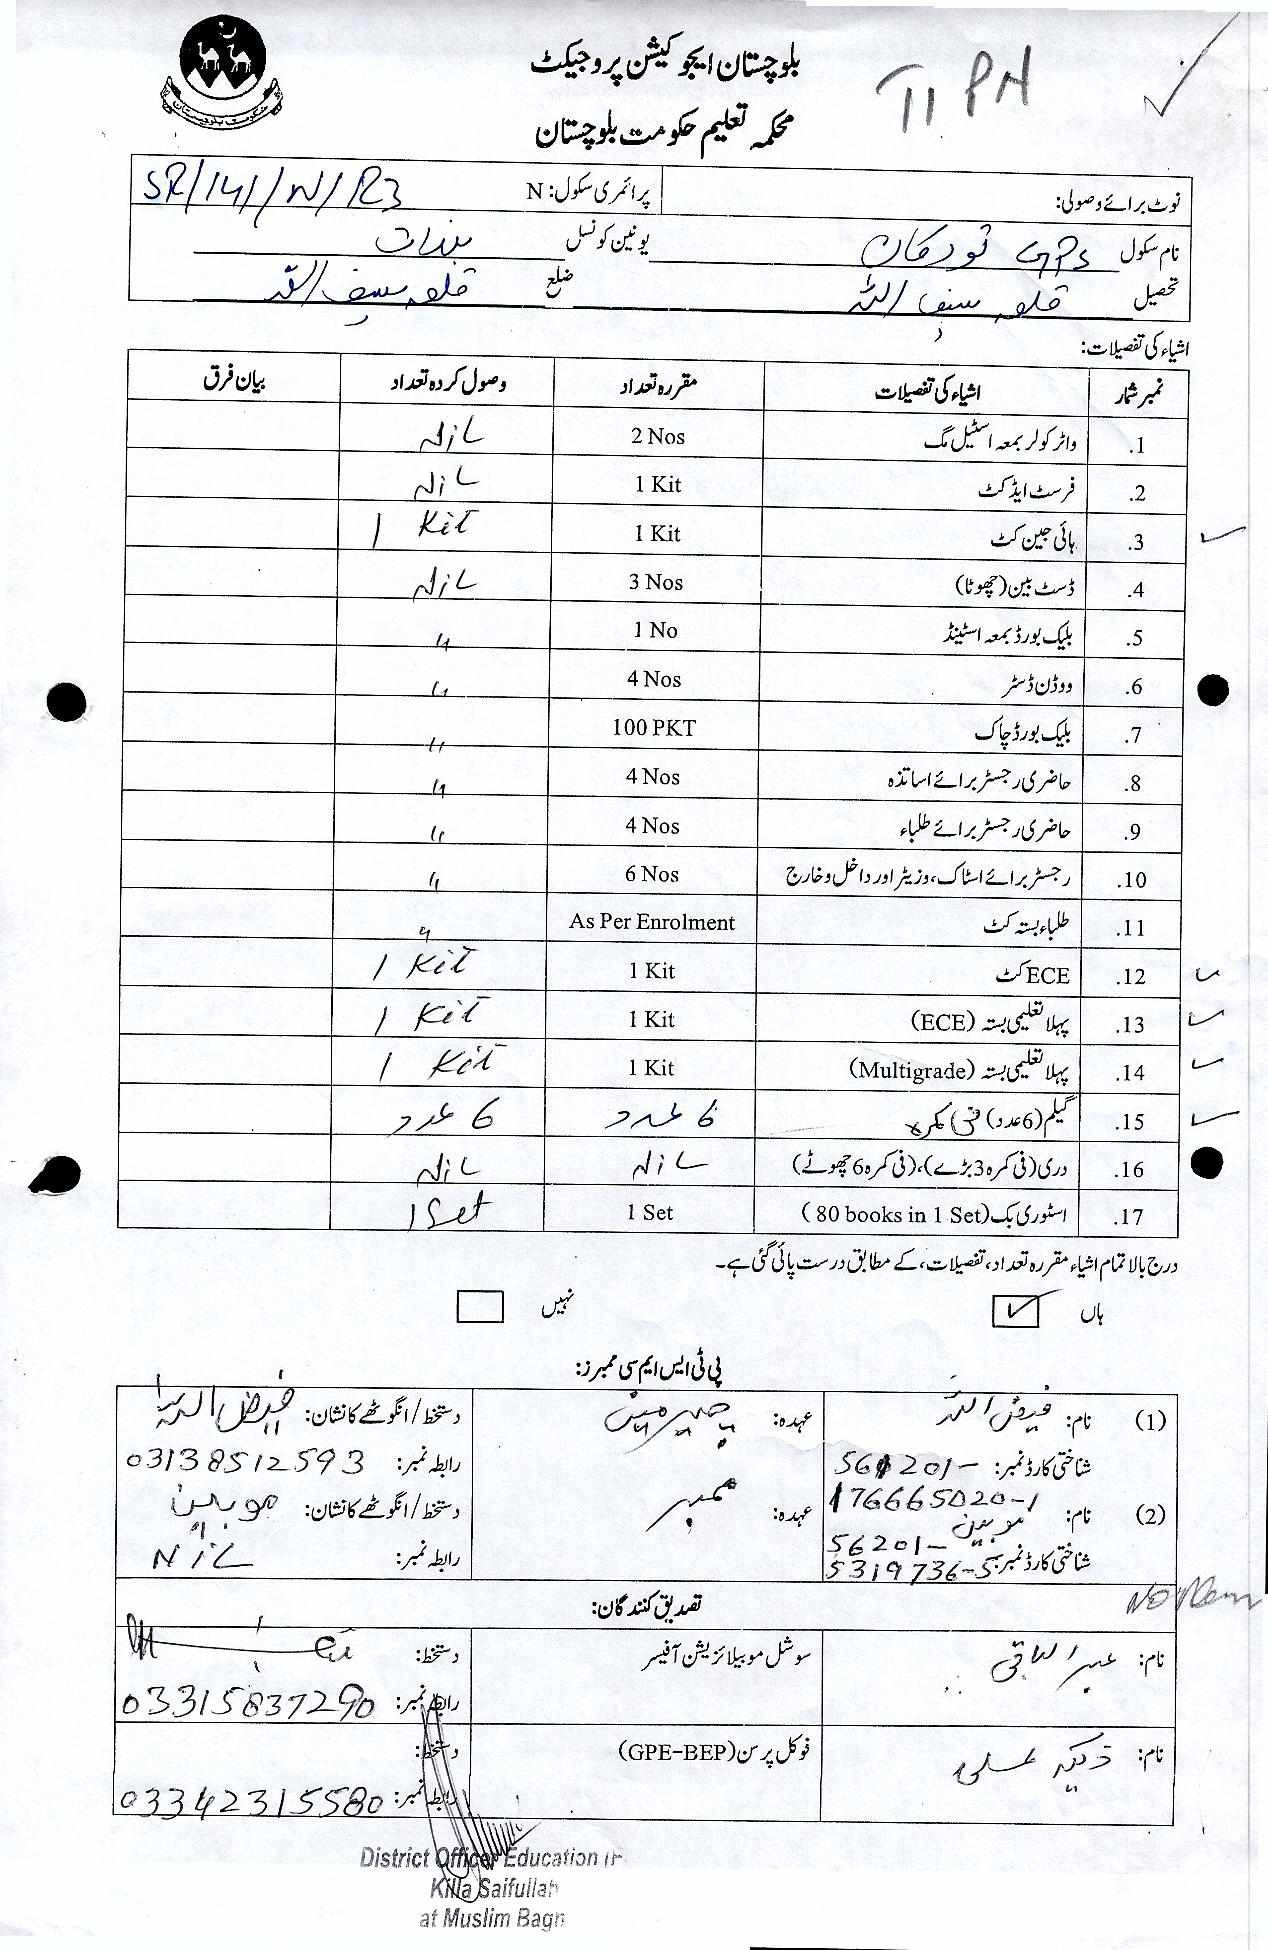 بلوچستان ایجوکیشن پروجیکٹ
محکمہ تعلیم حکومت بلوچستان
حکومت بلوچستان
نوٹ برائے وصولی: پرائمری سکول: N SR/141/N/R3
نام سکول GPS یونین کونسل
تحصیل قلعہ سیف اللہ ضلع قلعہ سیف اللہ
اشیاء کی تفصیلات:
نمبر شمار اشیاء کی تفصیلات مقررہ تعداد وصول کردہ تعداد بیان فرق
1. واٹر کولر بمعہ اسٹیل مگ 2 Nos Nil
2. فرسٹ ایڈ کٹ 1 Kit Nil
3. ہائی جین کٹ 1 Kit 1 Kit
4. ڈسٹ بین (چھوٹا) 3 Nos Nil
5. بلیک بورڈ بمعہ اسٹینڈ 1 No "
6. ووڈن ڈسٹر 4 Nos "
7. بلیک بورڈ چاک 100 PKT "
8. حاضری رجسٹر برائے اساتذہ 4 Nos "
9. حاضری رجسٹر برائے طلباء 4 Nos "
10. رجسٹر برائے اسٹاک، وزیٹر اور داخل و خارج 6 Nos "
11. طلباء بستہ کٹ As Per Enrolment "
12. ECE کٹ 1 Kit 1 Kit
13. پہلا تعلیمی بستہ (ECE) 1 Kit 1 Kit
14. پہلا تعلیمی بستہ (Multigrade) 1 Kit 1 Kit
15. گیلم (6 عدد) فی کمرہ 6 عدد 6 عدد
16. دری (فی کمرہ 3 بڑے)، (فی کمرہ 6 چھوٹے) Nil Nil
17. اسٹوری بک (80 books in 1 Set) 1 Set 1 Set
درج بالا تمام اشیاء مقررہ تعداد، تفصیلات، کے مطابق درست پائی گئی ہے۔
ہاں ✓ نہیں
پی ٹی ایس ایم سی ممبرز:
(1) نام: فیض اللہ عہدہ: چیئرمین دستخط/انگوٹھے کا نشان: فیض اللہ
شناختی کارڈ نمبر: 56201- رابطہ نمبر: 03138512593
176665020-1
(2) نام: موبین عہدہ: ممبر دستخط/انگوٹھے کا نشان: موبین
56201-
شناختی کارڈ نمبر: 5319736-5 رابطہ نمبر: Nil
تصدیق کنندگان:
نام: عبدالباقی سوشل موبیلائزیشن آفیسر دستخط:
رابطہ نمبر: 03315837290
نام: فوکل پرسن (GPE-BEP) دستخط:
رابطہ نمبر: 03342315580
District Officer Education
Killa Saifullah
at Muslim Bagh